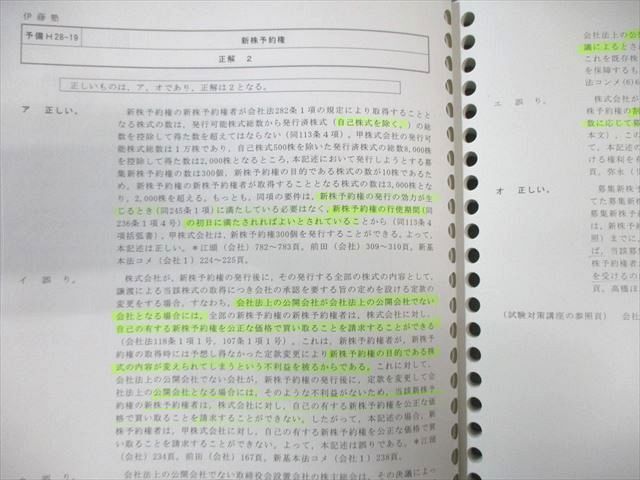 伊藤塾
予備H28-19
新株予約権
正解 2
正しいものは、ア、オであり、正解は2となる。
ア 正しい。
新株予約権の新株予約権者が会社法282条1項の規定により取得することと
なる株式の数は、発行可能株式総数から発行済株式(自己株式を除く。)の総
数を控除して得た数を超えてはならない(同113条4項)。甲株式会社の発行可
能株式総数は1万株であり、自己株式500株を除いた発行済株式の総数8,000株
を控除して得た数は2,000株となるところ、本記述において発行しようとする募
集新株予約権の数は300個、新株予約権の目的である株式の数が10株であるた
め、新株予約権の新株予約権者が取得することとなる株式の数は3,000株とな
り、2,000株を超える。もっとも、同項の要件は、新株予約権の発行の効力が生
じるとき(同245条1項)に満たしている必要はなく、新株予約権の行使期間(同
236条1項4号)の初日に満たされればよいとされていることから(同113条4
項括弧書)、甲株式会社は、新株予約権300個を発行することができる。よって、
本記述は正しい。*江頭(会社)782〜783頁、前田(会社)309〜310頁、新基
本法コメ(会社1)224〜225頁。
イ 誤り。
株式会社が、新株予約権の発行後に、その発行する全部の株式の内容として、
譲渡による当該株式の取得につき会社の承認を要する旨の定めを設ける定款の
変更をする場合、すなわち、会社法上の公開会社が会社法上の公開会社でない
会社となる場合には、全部の新株予約権の新株予約権者は、株式会社に対し、
自己の有する新株予約権を公正な価格で買い取ることを請求することができる
(会社法118条1項1号、107条1項1号)。これは、新株予約権者が、新株予
約権の取得時には予想し得なかった定款変更により新株予約権の目的である株
式の内容が変えられてしまうという不利益を被るからである。これに対して、
会社法上の公開会社でない会社が、新株予約権の発行後に、定款を変更して会
社法上の公開会社となる場合には、そのような不利益がないため、当該新株予
約権の新株予約権者は、株式会社に対し、自己の有する新株予約権を公正な価
格で買い取ることを請求することができない。したがって、本記述の場合、新
株予約権者は、甲株式会社に対し、自己の有する新株予約権を公正な価格で買
い取ることを請求することができない。よって、本記述は誤りである。*江頭
(会社)234頁、前田(会社)167頁、新基本法コメ(会社1)238頁。
会社法上の公開会社でない取締役会設置会社の株主総会は、その決議によっ
会社法上の公
議によるとさ
これを既存株
を保障するも
法コメ(6)6
エ 誤り。
株式会社が
株予約権の割
数に応じて募
本文)、この
て、本記述の
ける権利を
頁、弥永(
オ 正しい。
募集新株
てる募集新株
募集新株予
は、新株予
照)までに
ば、当該募
株予約権者
を受けるの
頁、高橋ほ
(試験対策講座の参照頁)会社